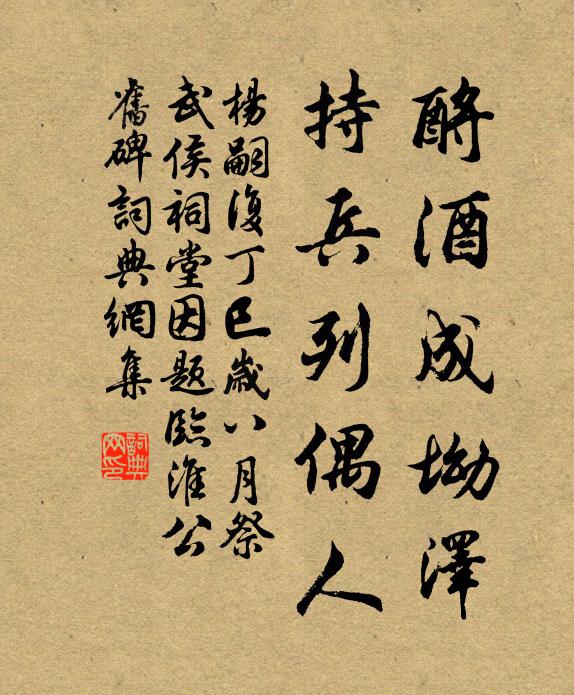 酹酒成坳澤
持兵列偶人
楊嗣復丁巳歲八月祭
武侯祠堂因題臨淮公
舊碑詞典網集
詞典网印